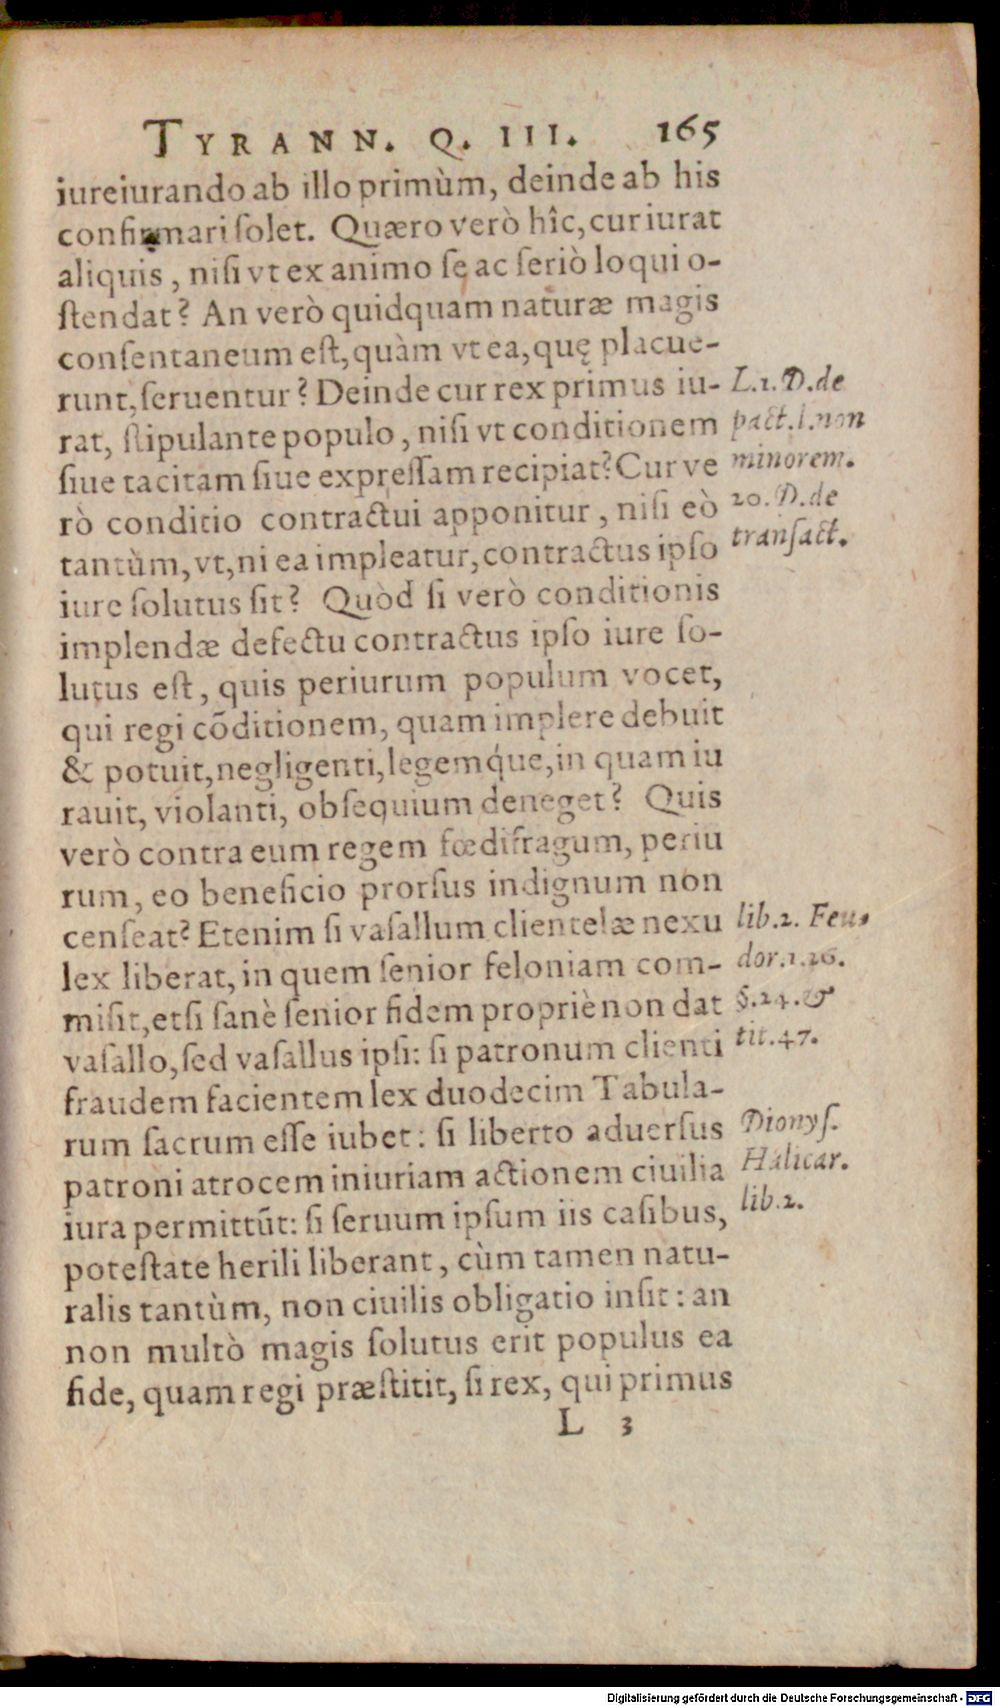 TYRANN. Q. III. 165
iureiurando ab illo primùm, deinde ab his
confirmari ſolet. Quæro verò hîc, cur iurat
aliquis, niſi vt ex animo ſe ac ſeriò loqui o-
ſtendat? An verò quidquam naturæ magis
conſentaneum eſt, quàm vt ea, quę placue-
runt, ſeruentur? Deinde cur rex primus iu-
rat, ſtipulante populo, niſi vt conditionem
ſiue tacitam ſiue expreſſam recipiat? Cur ve
rò conditio contractui apponitur, niſi eò
tantùm, vt, ni ea impleatur, contractus ipſo
iure ſolutus ſit? Quòd ſi verò conditionis
implendæ defectu contractus ipſo iure ſo-
lutus eſt, quis periurum populum vocet,
qui regi cõditionem, quam implere debuit
& potuit, negligenti, legemq́ue, in quam iu
rauit, violanti, obſequium deneget? Quis
verò contra eum regem fœdifragum, periu
rum, eo beneficio prorſus indignum non
cenſeat? Etenim ſi vaſallum clientelæ nexu
lex liberat, in quem ſenior feloniam com-
miſit, etſi ſanè ſenior fidem propriè non dat
vaſallo, ſed vaſallus ipſi: ſi patronum clienti
fraudem facientem lex duodecim Tabula-
rum ſacrum eſſe iubet: ſi liberto aduerſus
patroni atrocem iniuriam actionem ciuilia
iura permittũt: ſi ſeruum ipſum iis caſibus,
poteſtate herili liberant, cùm tamen natu-
ralis tantùm, non ciuilis obligatio inſit: an
non multò magis ſolutus erit populus ea
fide, quam regi præſtitit, ſi rex, qui primus
L 3
L.1. D. de
pact. l. non
minorem.
20. D. de
tranſact.
lib.2. Feu.
dor.1.26.
§.24. &
tit.47.
Dionyſ.
Halicar.
lib.2.
Digitalisierung gefördert durch die Deutsche Forschungsgemeinschaft - DFG